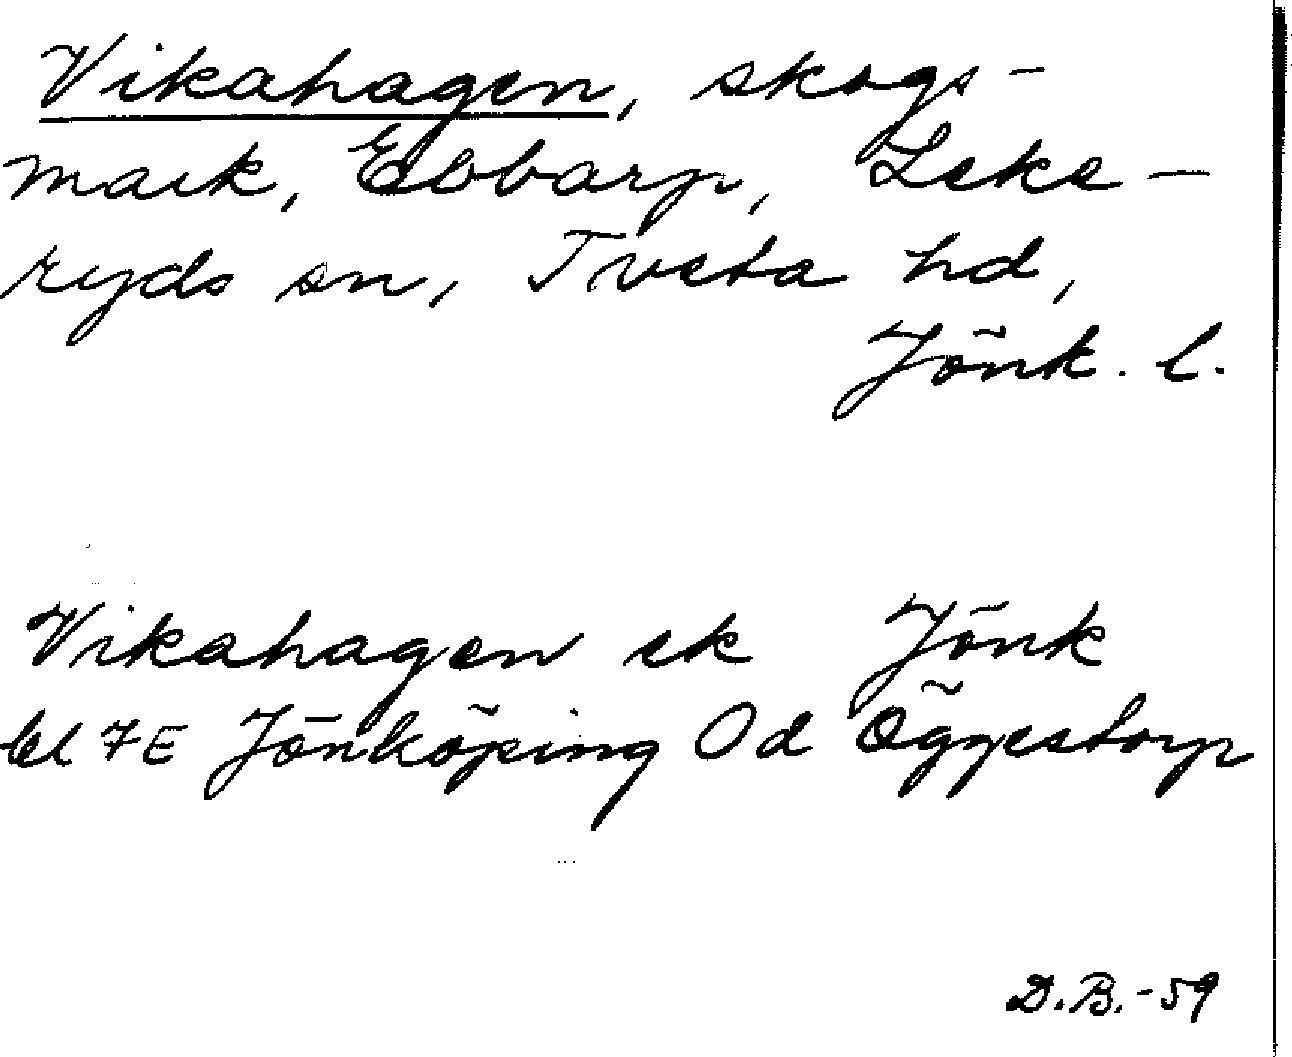 Vikahagen, skogs-
mark, Ebbarp, Leke-
ryds sn, Tveta hd,
Jönk. l.
Vikahagen ek Jönk
bl 7E Jönköping Od Öggestorp
D.B.-59